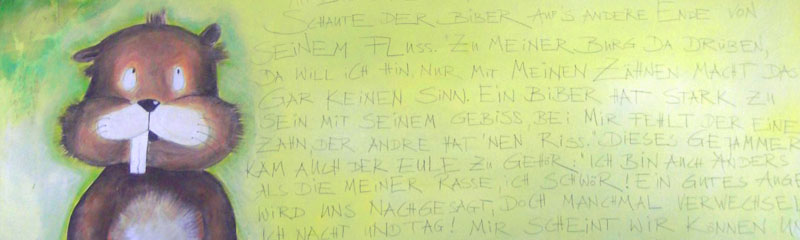 SCHAUTE DER BIBER AUF'S ANDERE ENDE VON
SEINEM FLUSS. "ZU MEINER BURG DA DRÜBEN,
DA WILL ICH HIN. NUR MIT MEINEN ZÄHNEN MACHT DAS
GAR KEINEN SINN. EIN BIBER HAT STARK ZU
SEIN MIT SEINEM GEBISS, BEI MIR FEHLT DER EINE
ZAHN, DER ANDRE HAT 'NEN RISS." DIESES GEJAMMER
KAM AUCH DER EULE ZU GEHÖR: "ICH BIN AUCH ANDERS
ALS DIE MEINER RASSE, ICH SCHWÖR! EIN GUTES AUGE
WIRD UNS NACHGESAGT, DOCH MANCHMAL VERWECHSEL
ICH NACHT UND TAG! MIR SCHEINT WIR KÖNNEN UN